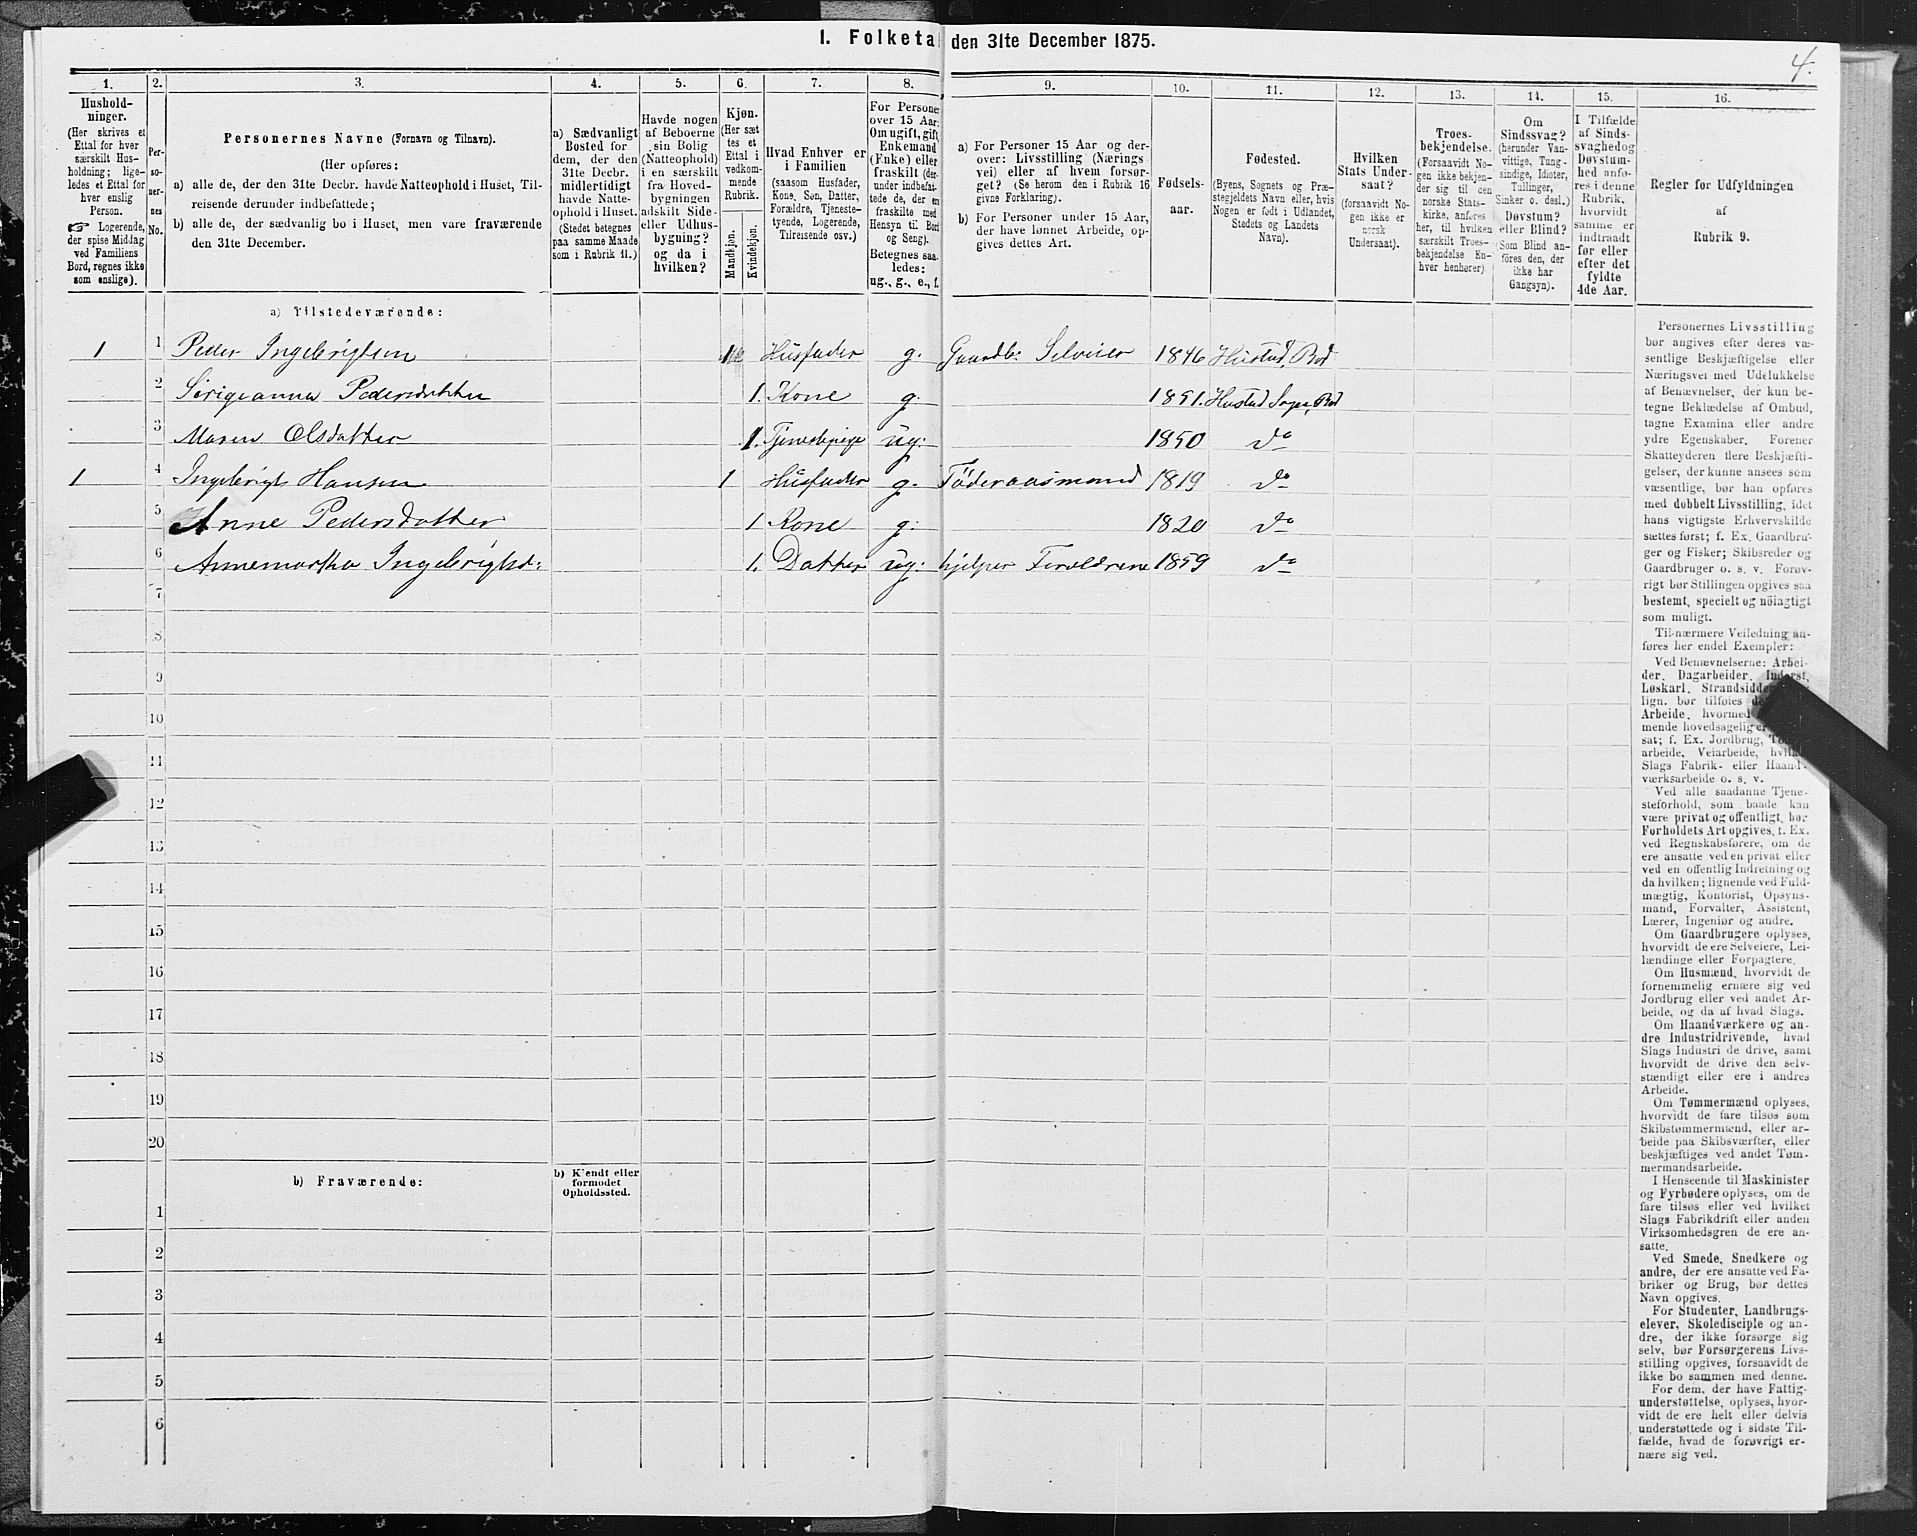 I. Folketa den 31te December 1875.
4.
1.
Hushold-
ninger.
(Her skrives et
Ettal for hver
særskilt Hus-
holdning; lige-
ledes et Ettal for
hver enslig
Person.
☞ Logerende,
der spise Middag
ved Familiens
Bord, regnes ikke
som enslige).
2.
Per-
so-
ner-
nes
No.
3.
Personernes Navne (Fornavn og Tilnavn).
(Her opføres:
a) alle de, der den 31te Decbr. havde Natteophold i Huset, Til-
reisende derunder indbefattede;
b) alle de, der sædvanlig bo i Huset, men vare fraværende
den 31te December.
4.
a) Sædvanligt
Bosted for
dem, der den
31te Decbr.
midlertidigt
havde Natte-
ophold i Huset.
(Stedet betegnes
paa samme Maade
som i Rubrik 11.)
5.
Havde nogen
af Beboerne
sin Bolig
(Natteophold)
i en særskilt
fra Hoved-
bygningen
adskilt Side-
eller Udhus-
bygning?
og da i
hvilken?
6.
Kjøn.
(Her sæt
tes et
Ettal i
vedkom-
mende
Rubrik.
Mandkjøn.
Kvindekjøn.
7.
Hvad Enhver er
i Familien
(saasom Husfader,
Kone, Søn, Datter,
Forældre, Tjeneste-
tyende, Logerende,
Tilreisende osv.)
8.
For Personer
over 15 Aar:
Om ugift, gift,
Enkemand
(Enke) eller
fraskilt (der-
under indbefat-
tede de, der ere
fraskilte med
Hensyn til Bord
og Seng).
Betegnes saa-
ledes:
ug., g., e., f.
9.
a) For Personer 15 Aar og der-
over: Livsstilling (Nærings
vei) eller af hvem forsør-
get? (Se herom den i Rubrik 16
givne Forklaring).
b) For Personer under 15 Aar,
der have lønnet Arbeide, op-
gives dettes Art.
10.
Fødsels-
aar.
11.
Fødested.
(Byens, Sognets og Præ-
stegjeldets Navn eller, hvis
Nogen er født i Udlandet,
Stedets og Landets
Navn).
12.
Hvilken
Stats Under-
saat?
(forsaavidt No-
gen ikke er
norsk
Undersaat).
13.
Troes-
bekjendelse.
(Forsaavidt No-
gen ikke bekjen-
der sig til den
norske Stats-
kirke, anføres
her, til hvilken
særskilt Troes-
bekjendelse En-
hver henhører)
14.
Om
Sindssvag?
(herunder Van-
vittige, Tung-
sindige, Idioter,
Tullinger,
Sinker o. desl.)
Døvstum?
eller Blind?
(Som Blind an-
føres den, der
ikke har
Gangsyn).
15.
I Tilfælde
af Sinds-
svaghed og
Døvstum-
hed anfø-
res i denne
Rubrik,
hvorvidt
samme er
indtraadt
før eller
efter det
fyldte
4de Aar.
16.
Regler for Udfyldningen
af
Rubrik 9.
a) Tilstedeværende:
1 1 Peder Ingebrigtsen 1 Husfader g. Gaardb: Selveier 1846 Hustad, Bod
2 Serigeanna Pedersdatter 1. Kone g. 1851. Hustad Sogn, Bod
3 Maren Olsdatter 1. Tjenestepige ug: 1850 do
1 4 Ingebrigt Hansen 1 Husfader g. Föderaadsmand 1819 do
5 Anne Pedersdatter 1. Kone g. 1820 do
6 Annemartha Ingebrigtsd: 1. Datter ug: hjelper Foreldrene 1859 do
7
8
9
10
11
12
13
14
15
16
17
18
19
20
b) Fraværende:
b) Kjendt eller
formodet
Opholdssted.
1
2
3
4
5
6
Personernes Livsstilling
bør angives efter deres væ-
sentlige Beskjæftigelse eller
Næringsvei med Udelukkelse
af Benævnelser, der kun be-
tegne Beklædelse af Ombud,
tagne Examina eller andre
ydre Egenskaber. Forener
Skatteyderen flere Beskjæfti-
gelser, der kunne ansees som
væsentlige, bør han opføres
med dobbelt Livsstilling, idet
hans vigtigste Erhvervskilde
sættes først; f. Ex. Gaardbru-
ger og Fisker; Skibsreder og
Gaardbruger o. s. v. Forøv-
rigt bør Stillingen opgives saa
bestemt, specielt og nöiagtigt
som muligt.
Til nærmere Veiledning an-
føres her endel Exempler:
Ved Benævnelserne: Arbei-
der, Dagarbeider, Inderst,
Løskarl, Strandsidder
lign. bør tilføies de
Arbeide, hvormed
mende hovedsagelig er
sat; f. Ex. Jordbrug,
arbeide, Veiarbeide, hvilket
Slags Fabrik- eller Haand-
værksarbeide o. s. v.
Ved alle saadanne Tjene-
steforhold, som baade kan
være privat og offentligt, bør
Forholdets Art opgives, f. Ex.
ved Regnskabsførere, om de
ere ansatte ved en privat eller
ved en offentlig Indretning og
da hvilken; lignende ved Fuld-
mægtig, Kontorist, Opsyns-
mand, Forvalter, Assistent,
Lærer, Ingeniør og andre.
Om Gaardbrugere oplyses,
hvorvidt de ere Selveiere, Lei-
lændinge eller Forpagtere.
Om Husmænd, hvorvidt de
fornemmelig ernære sig ved
Jordbrug eller ved andet Ar-
beide, og da af hvad Slags.
Om Haandværkere og an-
dre Industridrivende, hvad
Slags Industri de drive, samt
hvorvidt de drive den selv-
stændigt eller ere i andres
Arbeide.
Om Tømmermænd oplyses,
hvorvidt de fare tilsøs som
Skibstømmermænd, eller ar-
beide paa Skibsværfter, eller
beskjæftiges ved andet Tøm-
mermandsarbeide.
I Henseende til Maskinister
og Fyrbødere oplyses, om de
fare tilsøs eller ved hvilket
Slags Fabrikdrift eller anden
Virksomhedsgren de ere an-
satte.
Ved Smede, Snedkere og
andre, der ere ansatte ved Fa-
briker og Brug, bør dettes
Navn opgives.
For Studenter, Landbrugs-
elever, Skoledisciple og an-
dre, der ikke forsørge sig
selv, bør Forsørgerens Livs-
stilling opgives, forsaavidt de
ikke bo sammen med denne.
For dem, der have Fattig-
understøttelse, oplyses, hvor-
vidt de ere helt eller delvis
understøttede og i sidste Til-
fælde, hvad de forøvrigt er-
nære sig ved.